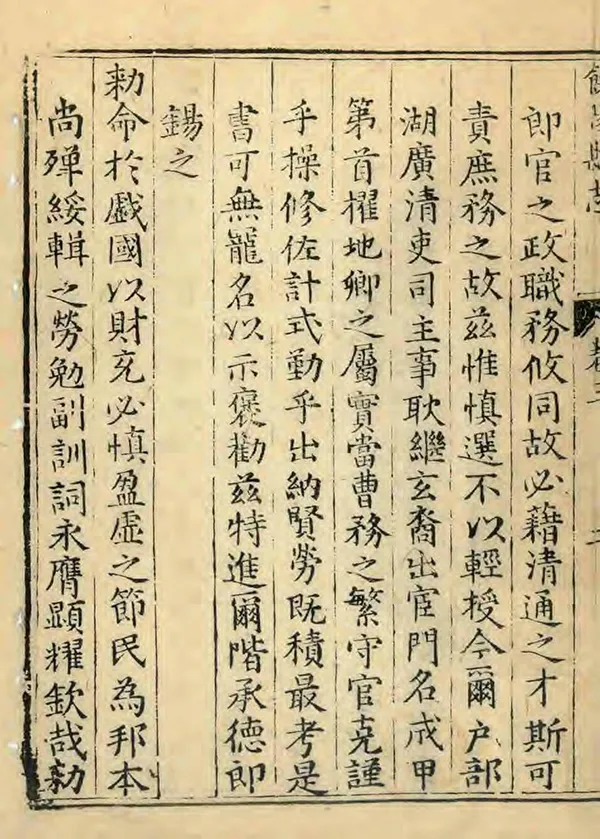 館陶縣志 卷三
郎官之政職務攸同故必藉清通之才斯可
責庶務之故茲惟慎選不以輕授今爾户部
湖廣清吏司主事耿繼玄裔出宦門名成甲
第首擢地卿之屬實當曹務之繁守官克謹
乎操修佐計式勤乎出納賢勞既積最考是
書可無寵名以示褒勸茲特進爾階承德郎
錫之
勑命於戲國以財充必慎盈虛之節民為邦本
尚殫綏輯之勞勉副訓詞永膺顯耀欽哉勑